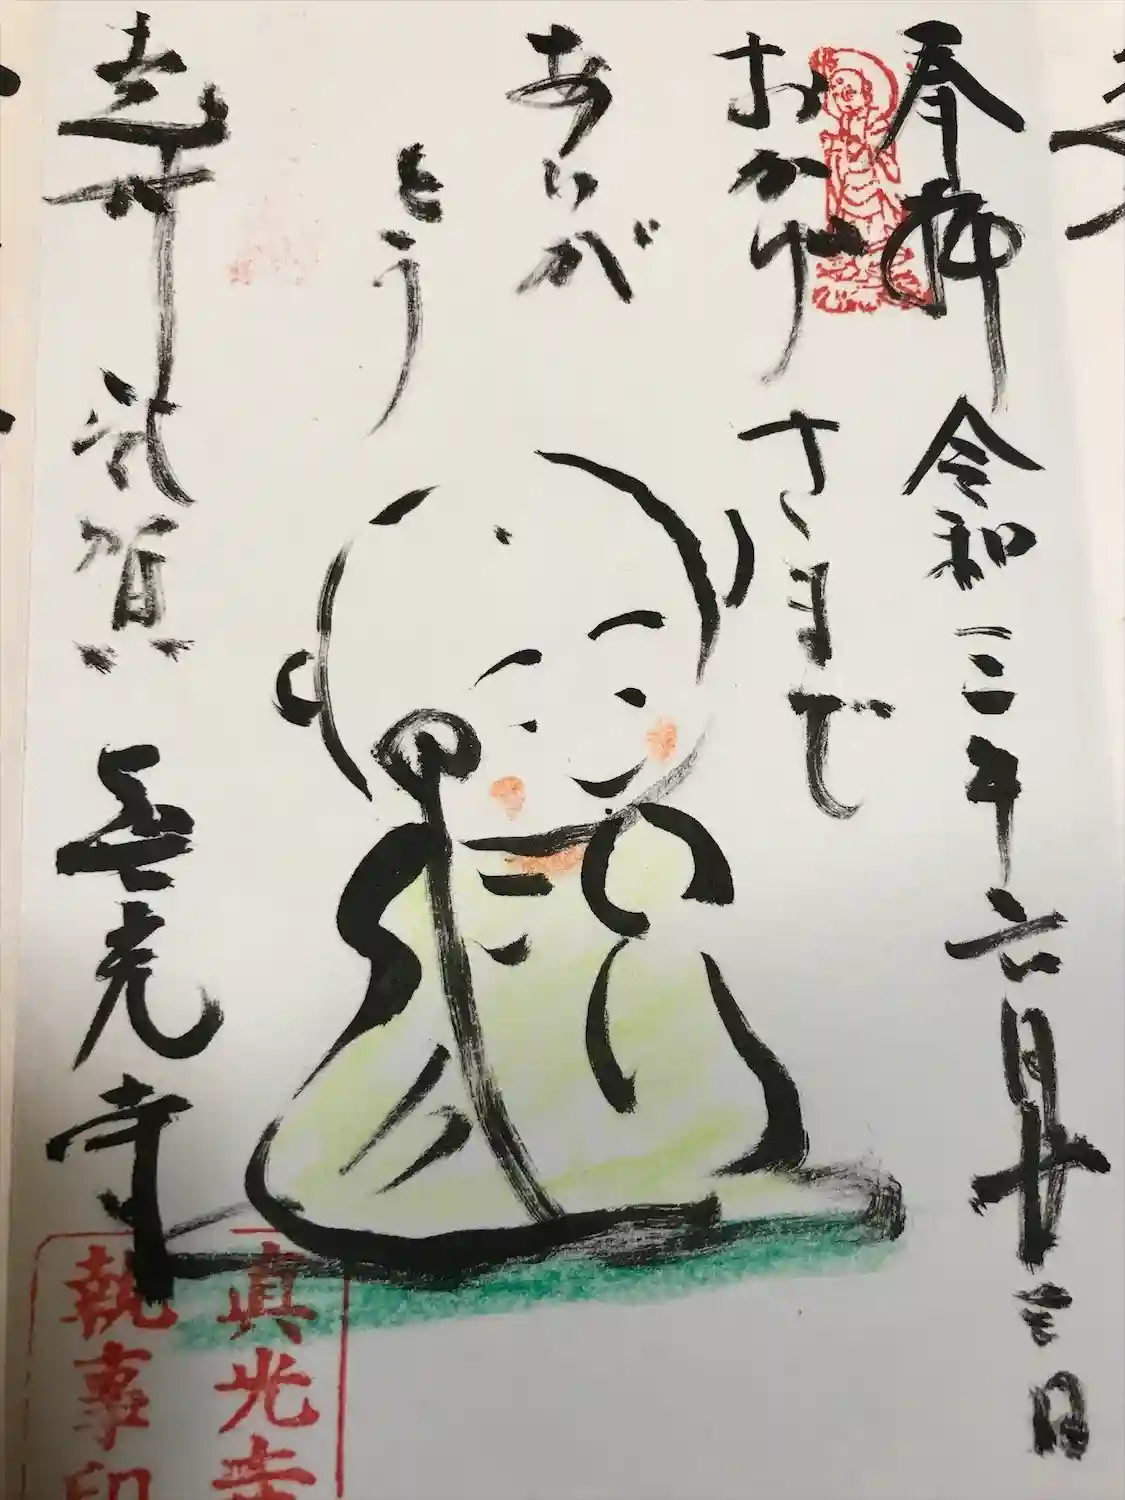 奉拝 令和三年六月廿三日
おかげさまで
ありが
とう
志賀 真光寺
真光寺
執事印